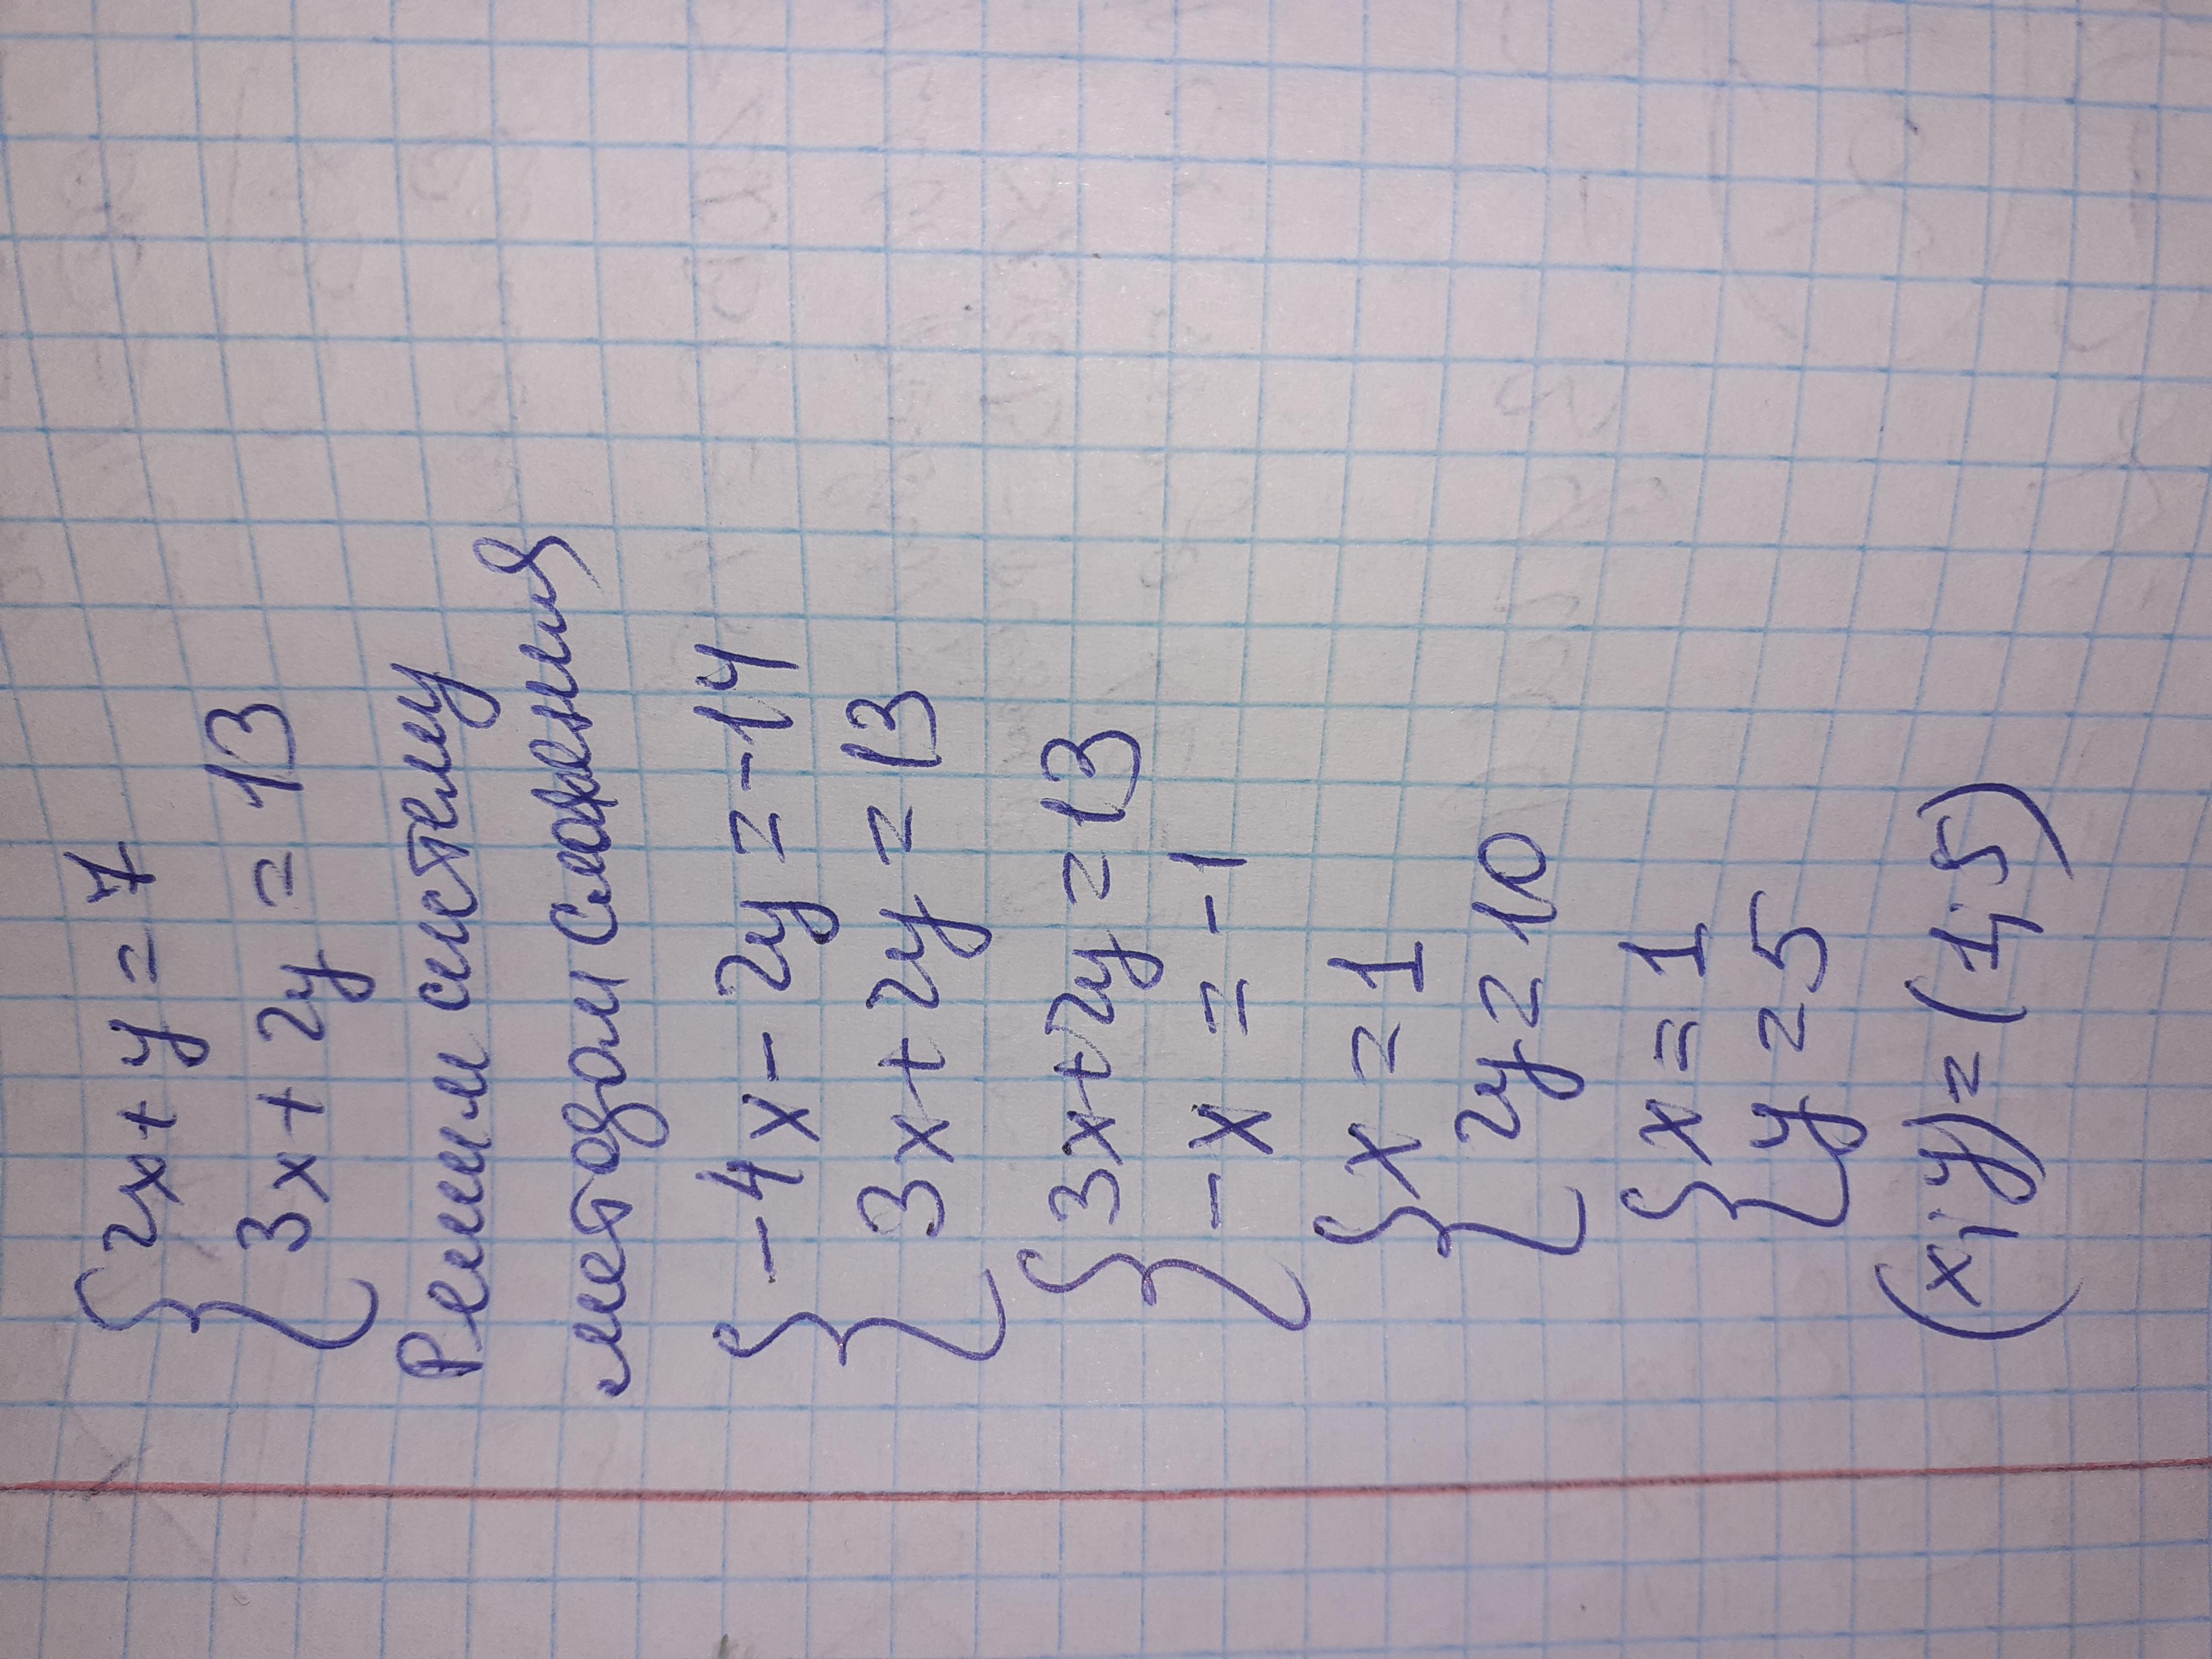 { 2x + y = 7
3x + 2y = 13
Решим систему
методом сложения
{ -4x - 2y = -14
3x + 2y = 13
{ 3x + 2y = 13
-x = -1
{ x = 1
2y = 10
{ x = 1
y = 5
(x; y) = (1; 5)